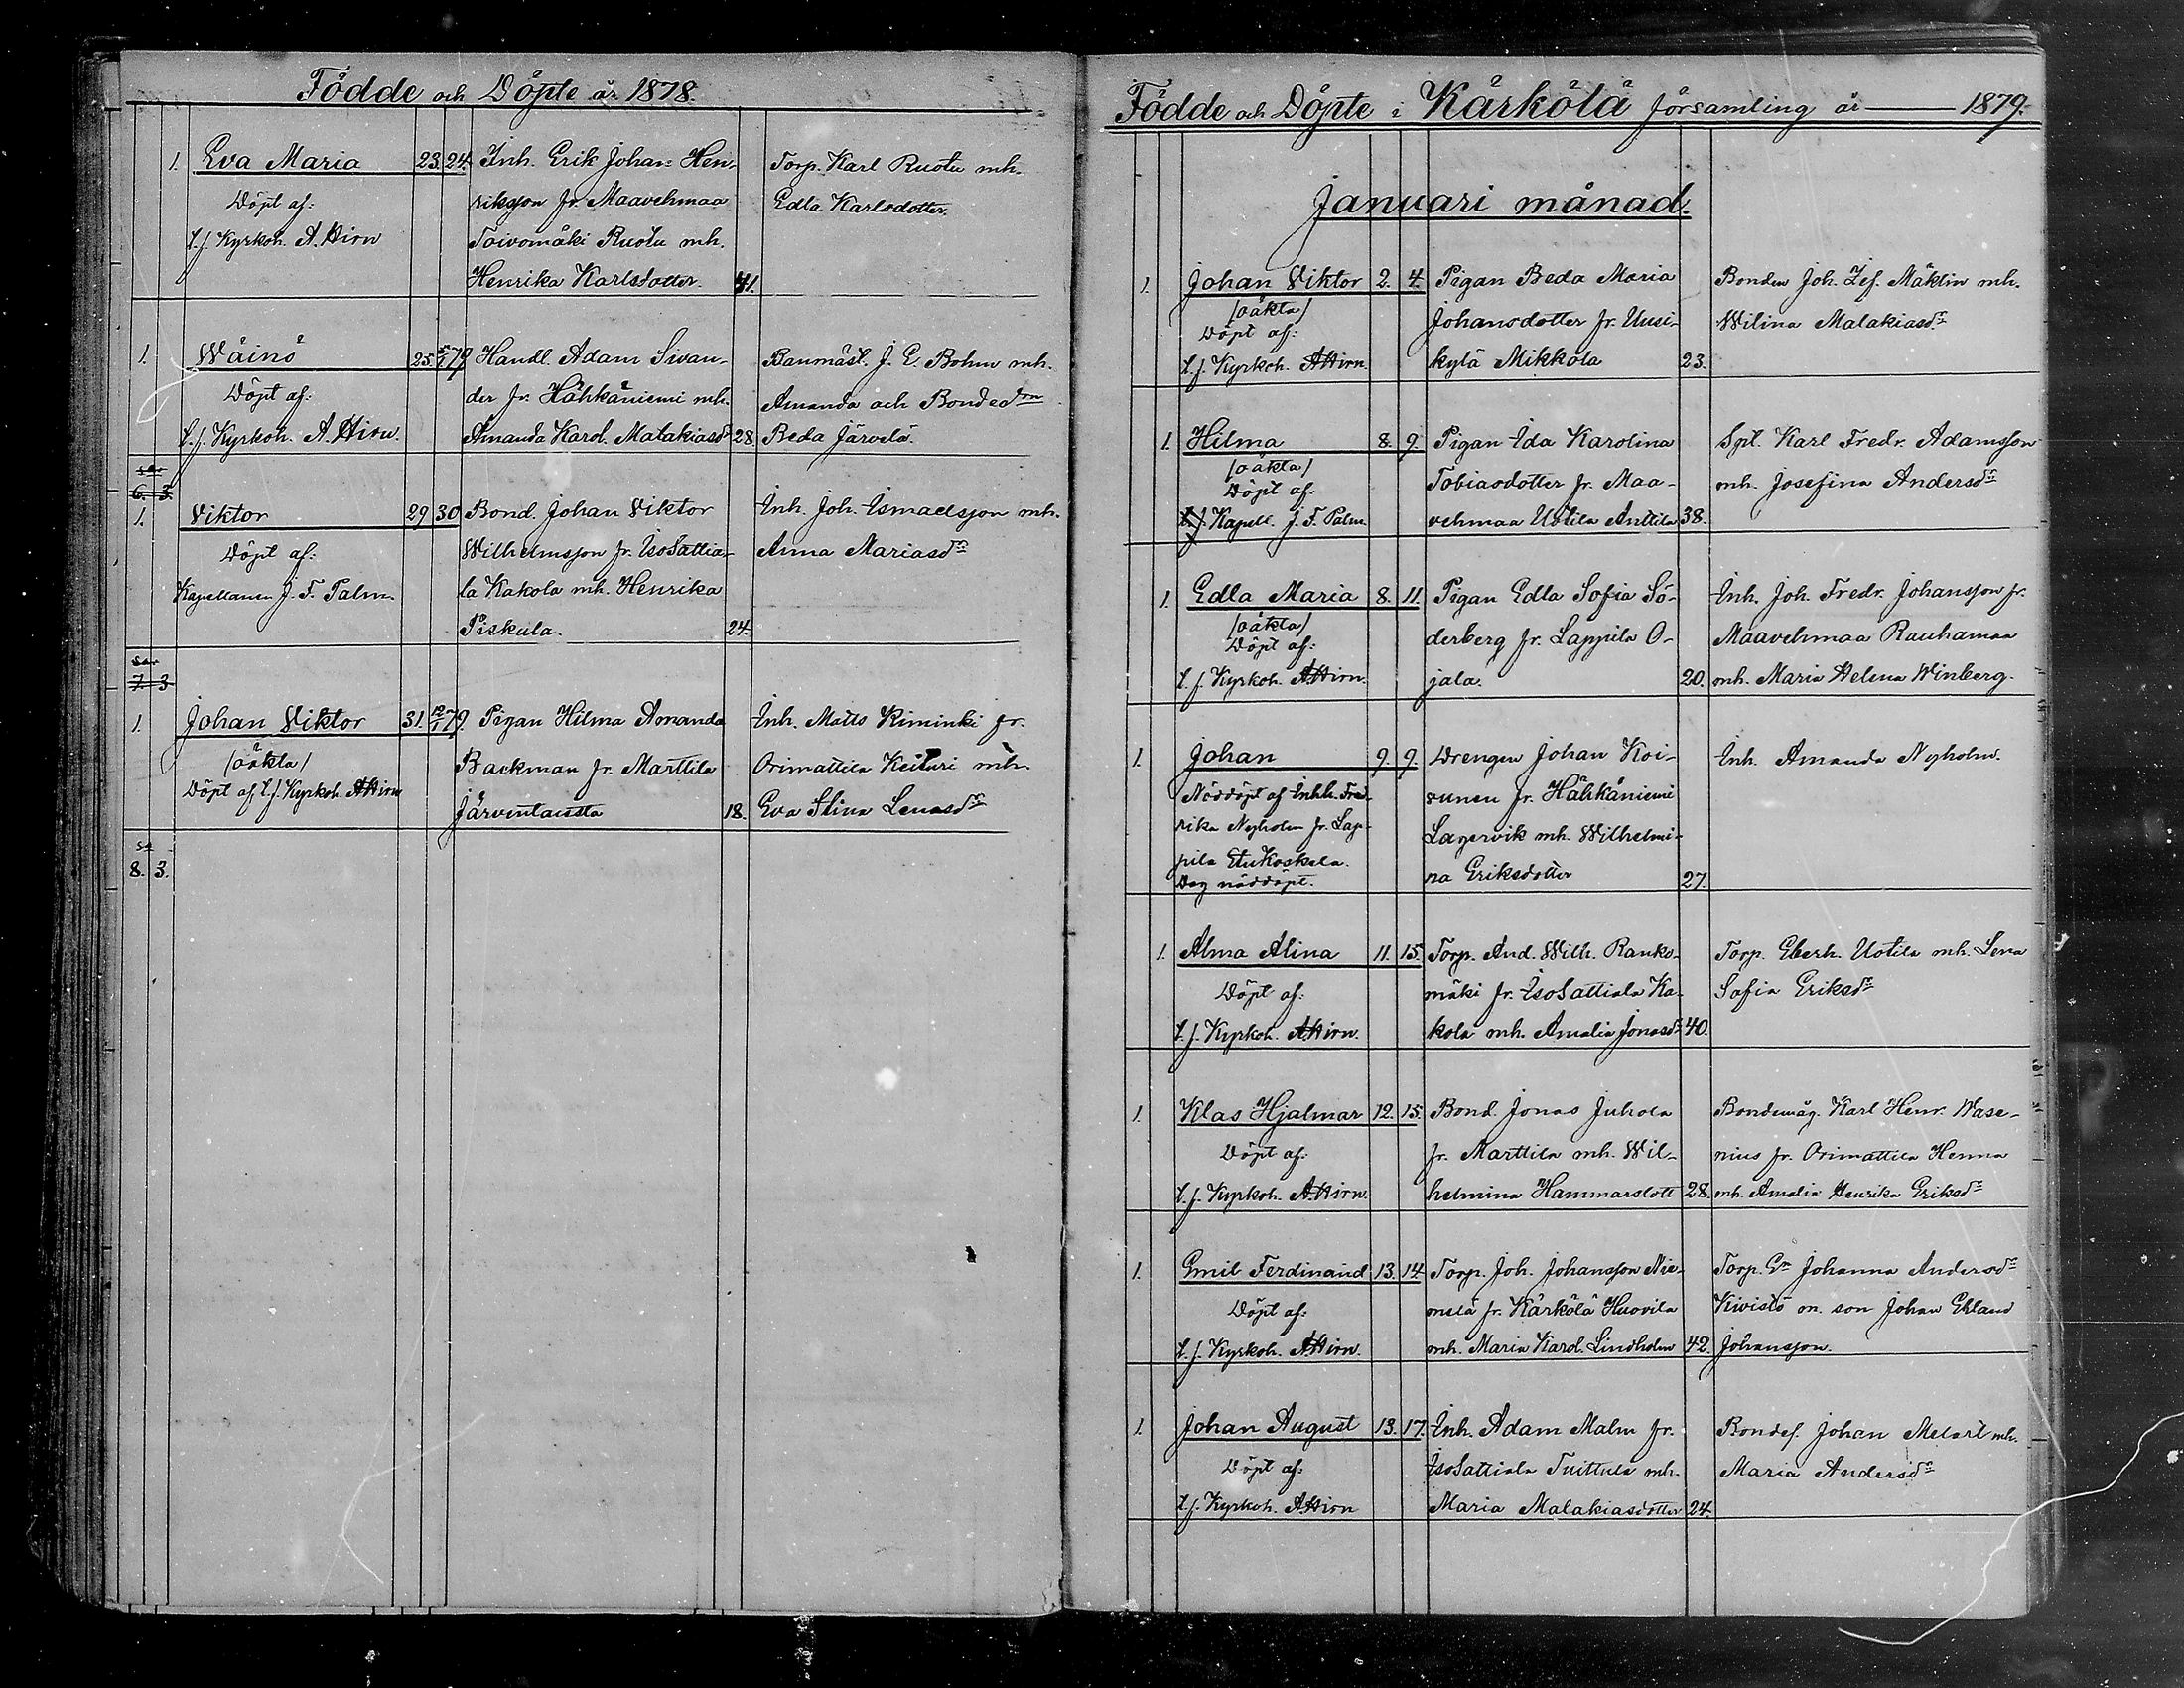 Födde och Döpte år 1878.
1. Eva Maria 23. 24. Inh. Erik Johan Hen- Torp. Karl Ruotu mh.
Döpt af: riksson fr. Maavehmaa Edla Karlsdotter.
t.f. Kyrkoh. A. Hirn Toivomäki Ruotu mh.
Henrika Karlsdotter. 41.
1. Wäinö 25. 5/1 79 Handl. Adam Sivan- Baumäst. J. E. Bohm mh.
Döpt af: der fr. Hähkäniemi mh. Amanda och Bonded:rn
t.f. Kyrkoh. A. Hirn. Amanda Karol. Malakiasd:r 28. Beda Järvelä.
6. 3.
1. Viktor 29 30 Bond. Johan Viktor Inh. Joh. Ismaelsson mh.
Döpt af: Wilhelmsson fr. IsoSattia- Anna Mariasd:r
Kapellanen J. F. Palm. la Kakola mh. Henrika
Piskula. 24.
7. 3
1. Johan Viktor 31. 12/1 79. Pigan Hilma Amanda Inh. Matts Kiminki fr.
/oäkta/ Backman fr. Marttila Orimattila Keituri mh.
Döpt af t.f. Kyrkoh. A Hirn Järventausta 18. Eva Stina Lenasd:r
8. 3.
Födde och Döpte i Kärkölä församling år 1879.
Januari månad.
1. Johan Viktor 2. 4. Pigan Beda Maria Bonden Joh. Zef. Mäklin mh.
/oäkta/ Johansdotter fr. Uusi- Wilina Malakiasd:r
Döpt af:
t.f. Kyrkoh. A Hirn. kylä Mikkola 23.
1. Hilma 8. 9. Pigan Ida Karolina Spil. Karl Fredr. Adamsson
/oäkta/ Tobiasdotter fr. Maa- mh. Josefina Andersd:r
Döpt af:
Kapell. J. F. Palm vehmaa Ustila Anttila 38.
1. Edla Maria 8. 11. Pigan Edla Sofia Sö- Inh. Joh. Fredr. Johansson fr.
/oäkta/ derberg fr. Lappila O- Maavehmaa Rauhamaa
Döpt af:
t.f. Kyrkoh. A Hirn. jala. 20. mh. Maria Helena Winberg.
1. Johan 9. 9. Drengen Johan Koi- Inh. Amanda Nyholm.
Nöddöpt af Inhh. Fred- vunen fr. Hähkäniemi
rika Nyholm fr. Lap- Lagervik mh. Wilhelmi-
pila EtuKoskela. na Eriksdotter 27.
Dog nöddöpt.
1. Alma Alina 11. 15. Torp. And. Wilh. Ranko- Torp. Eberh. Uotila mh. Lena
Döpt af: mäki fr. IsoSattiala Ka- Sofia Eriksd:r
t.f. Kyrkoh. A Hirn. kola mh. Amalia Jonasd:r 40.
1. Klas Hjalmar 12. 15. Bond. Jonas Juhola Bondemåg. Karl Henr. Wase-
Döpt af: fr. Marttila mh. Wil- nius fr. Orimattila Henna
t.f. Kyrkoh. A Hirn. helmina Hammarslott 28. mh. Amalia Henrika Eriksd:r
1. Emil Ferdinand 13. 14 Torp. Joh. Johansson Nie- Torp. E:n Johanna Andersd:r
Döpt af: melä fr. Kärkölä Huovila Kivistö o. son Johan Ekland
t.f. Kyrkoh. A Hirn. mh. Maria Karol. Lindholm 42. Johansson.
1. Johan August 13. 17. Inh. Adam Malm fr. Bondes. Johan Melart mh.
Döpt af: IsoSattiala Tuittula mh. Maria Andersd:r
t.f. Kyrkoh. A Hirn Maria Malakiasdotter 24.